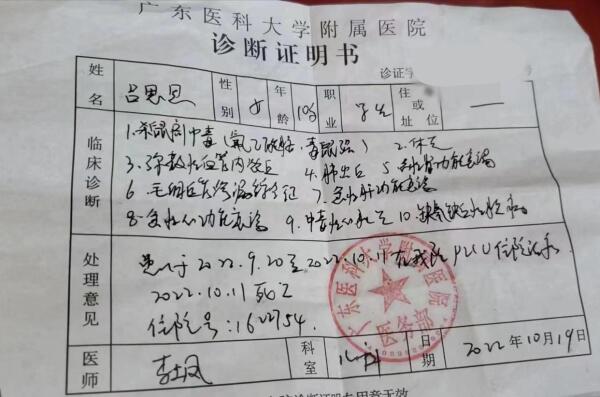 广东医科大学附属医院
诊断证明书
诊证字
姓名 吕思恩 性别 女 年龄 10岁 职业 学生 住或址位 —
临床诊断
1.杀鼠剂中毒(氟乙酰胺、毒鼠强) 2.休克
3.弥散性血管内凝血 4.肺出血 5.急性肾功能衰竭
6.毛细血管渗漏综合征 7.急性肝功能衰竭
8.急性心功能衰竭 9.中毒性心肌炎 10.缺氧缺血性脑病
处理意见
患儿于2022.9.20至2022.10.11在我院PICU住院治疗
2022.10.11死亡
住院号:1622754.
广东医科大学附属医院
医务部
医师 科室 儿科 日期 2022年10月19日
诊断证明专用章无效